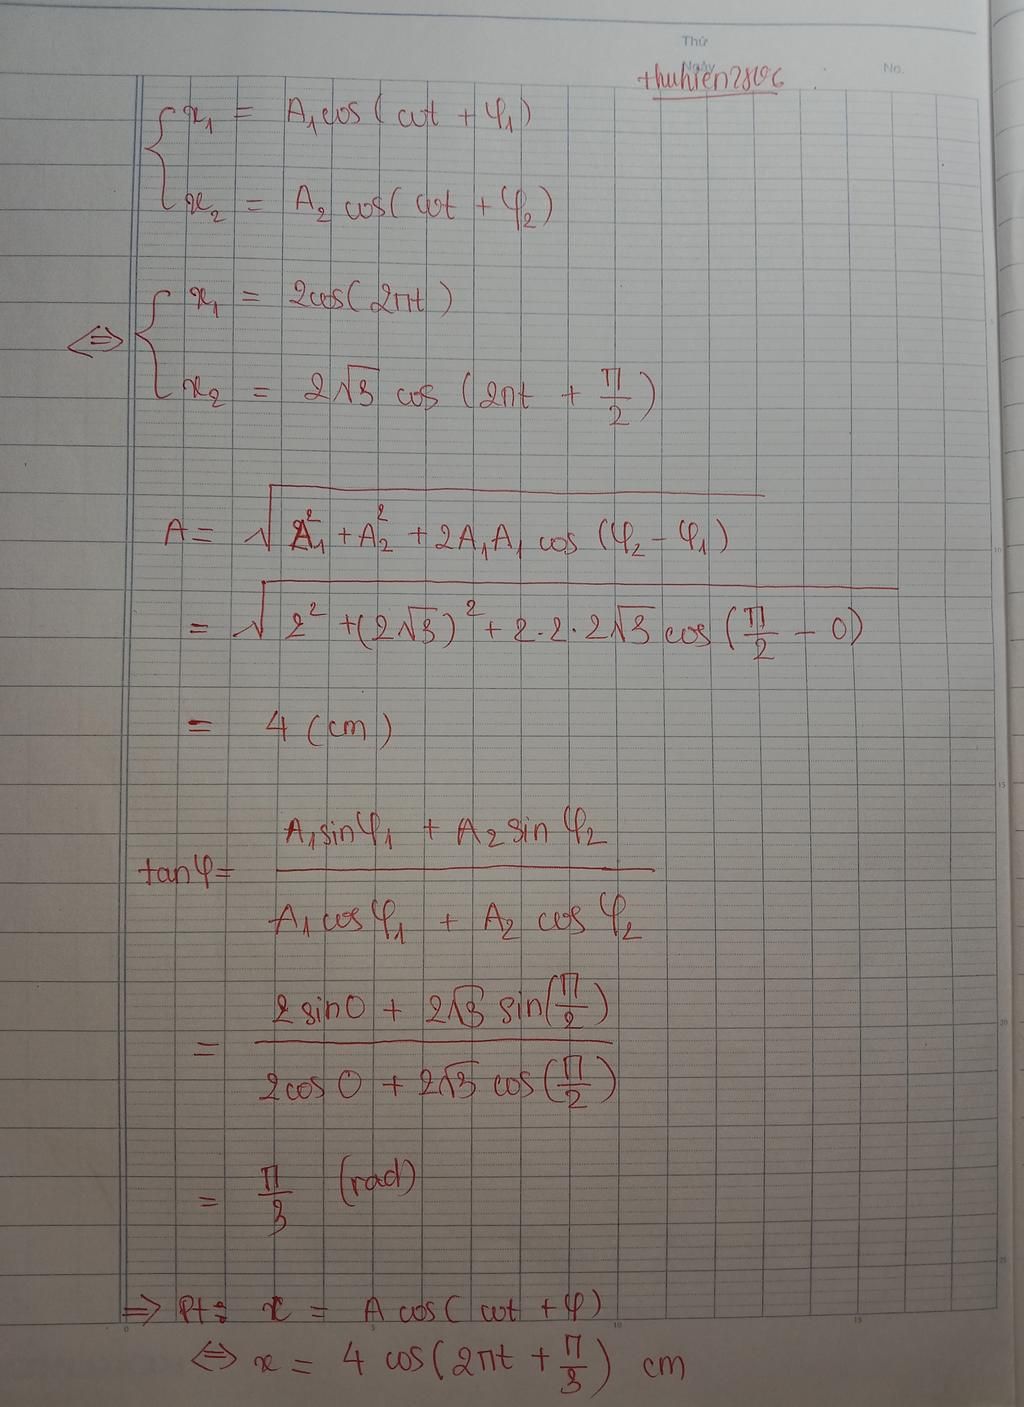 Thứ
Ngày
No.
thuhien2806
x₁ = A₁cos(ωt + φ₁)
x₂ = A₂ cos(ωt + φ₂)
⇔ x₁ = 2cos(2πt)
x₂ = 2√3 cos (2πt + π/2)
A = √(A₁² + A₂² + 2A₁A₁ cos (φ₂ - φ₁))
= √(2² + (2√3)² + 2.2.2√3 cos (π/2 - 0))
= 4 (cm)
tanφ = (A₁sinφ₁ + A₂ sin φ₂)/(A₁ cosφ₁ + A₂ cos φ₂)
= (2 sin0 + 2√3 sin(π/2))/(2cos 0 + 2√3 cos(π/2))
= π/3 (rad)
⇒ Pt: x = A cos(ωt + φ)
⇔ x = 4 cos(2πt + π/3) cm